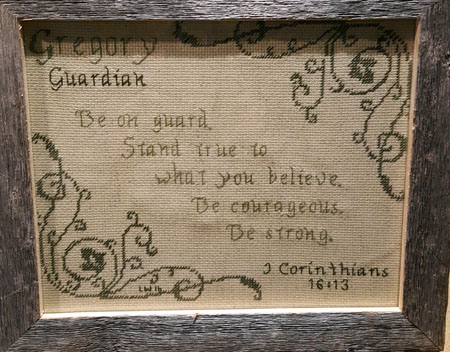 Gregory
Guardian
Be on guard.
Stand true to
what you believe.
Be courageous.
Be strong.
I Corinthians
16:13